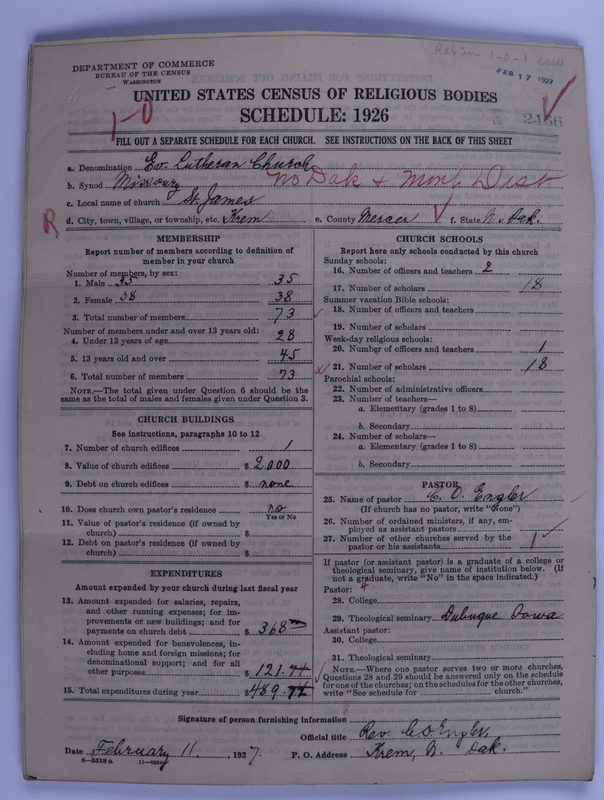 DEPARTMENT OF COMMERCE
BUREAU OF THE CENSUS
WASHINGTON
FEB 17 1927
UNITED STATES CENSUS OF RELIGIOUS BODIES
SCHEDULE: 1926
1-0
FILL OUT A SEPARATE SCHEDULE FOR EACH CHURCH. SEE INSTRUCTIONS ON THE BACK OF THIS SHEET
a. Denomination Ev. Lutheran Church
b. Synod Missoury No Dak + Mont. Dist
c. Local name of church St. James
R d. City, town, village, or township, etc. Krem e. County Mercer f. State N. Dak.
MEMBERSHIP
Report number of members according to definition of
member in your church
Number of members, by sex:
1. Male 35 35
2. Female 38 38
3. Total number of members 73
Number of members under and over 13 years old:
4. Under 13 years of age 28
5. 13 years old and over 45
6. Total number of members 73
NOTE.—The total given under Question 6 should be the
same as the total of males and females given under Question 3.
CHURCH BUILDINGS
See instructions, paragraphs 10 to 12
7. Number of church edifices 1
8. Value of church edifices $ 2000
9. Debt on church edifices $ none
10. Does church own pastor's residence no
Yes or No
11. Value of pastor's residence (if owned by
church) $
12. Debt on pastor's residence (if owned by
church) $
EXPENDITURES
Amount expended by your church during last fiscal year
13. Amount expended for salaries, repairs,
and other running expenses; for im-
provements or new buildings; and for
payments on church debt $ 368
14. Amount expended for benevolences, in-
cluding home and foreign missions; for
denominational support; and for all
other purposes $ 121.
15. Total expenditures during year $ 489.
CHURCH SCHOOLS
Report here only schools conducted by this church
Sunday schools:
16. Number of officers and teachers 2
17. Number of scholars 18
Summer vacation Bible schools:
18. Number of officers and teachers
19. Number of scholars
Week-day religious schools:
20. Number of officers and teachers 1
21. Number of scholars 18
Parochial schools:
22. Number of administrative officers
23. Number of teachers—
a. Elementary (grades 1 to 8)
b. Secondary
24. Number of scholars—
a. Elementary (grades 1 to 8)
b. Secondary
PASTOR
25. Name of pastor C. O. Engler
(If church has no pastor, write "None")
26. Number of ordained ministers, if any, em-
ployed as assistant pastors
27. Number of other churches served by the
pastor or his assistants 1
If pastor (or assistant pastor) is a graduate of a college or
theological seminary, give name of institution below. (If
not a graduate, write "No" in the space indicated.)
Pastor:
28. College
29. Theological seminary Dubuque Iowa
Assistant pastor:
30. College
31. Theological seminary
NOTE.—Where one pastor serves two or more churches,
Questions 28 and 29 should be answered only on the schedule
for one of the churches; on the schedules for the other churches,
write "See schedule for church."
Signature of person furnishing information
Official title Rev. C O Engler.
Date February 11, 1927. P. O. Address Krem, N. Dak.
8-5518 a